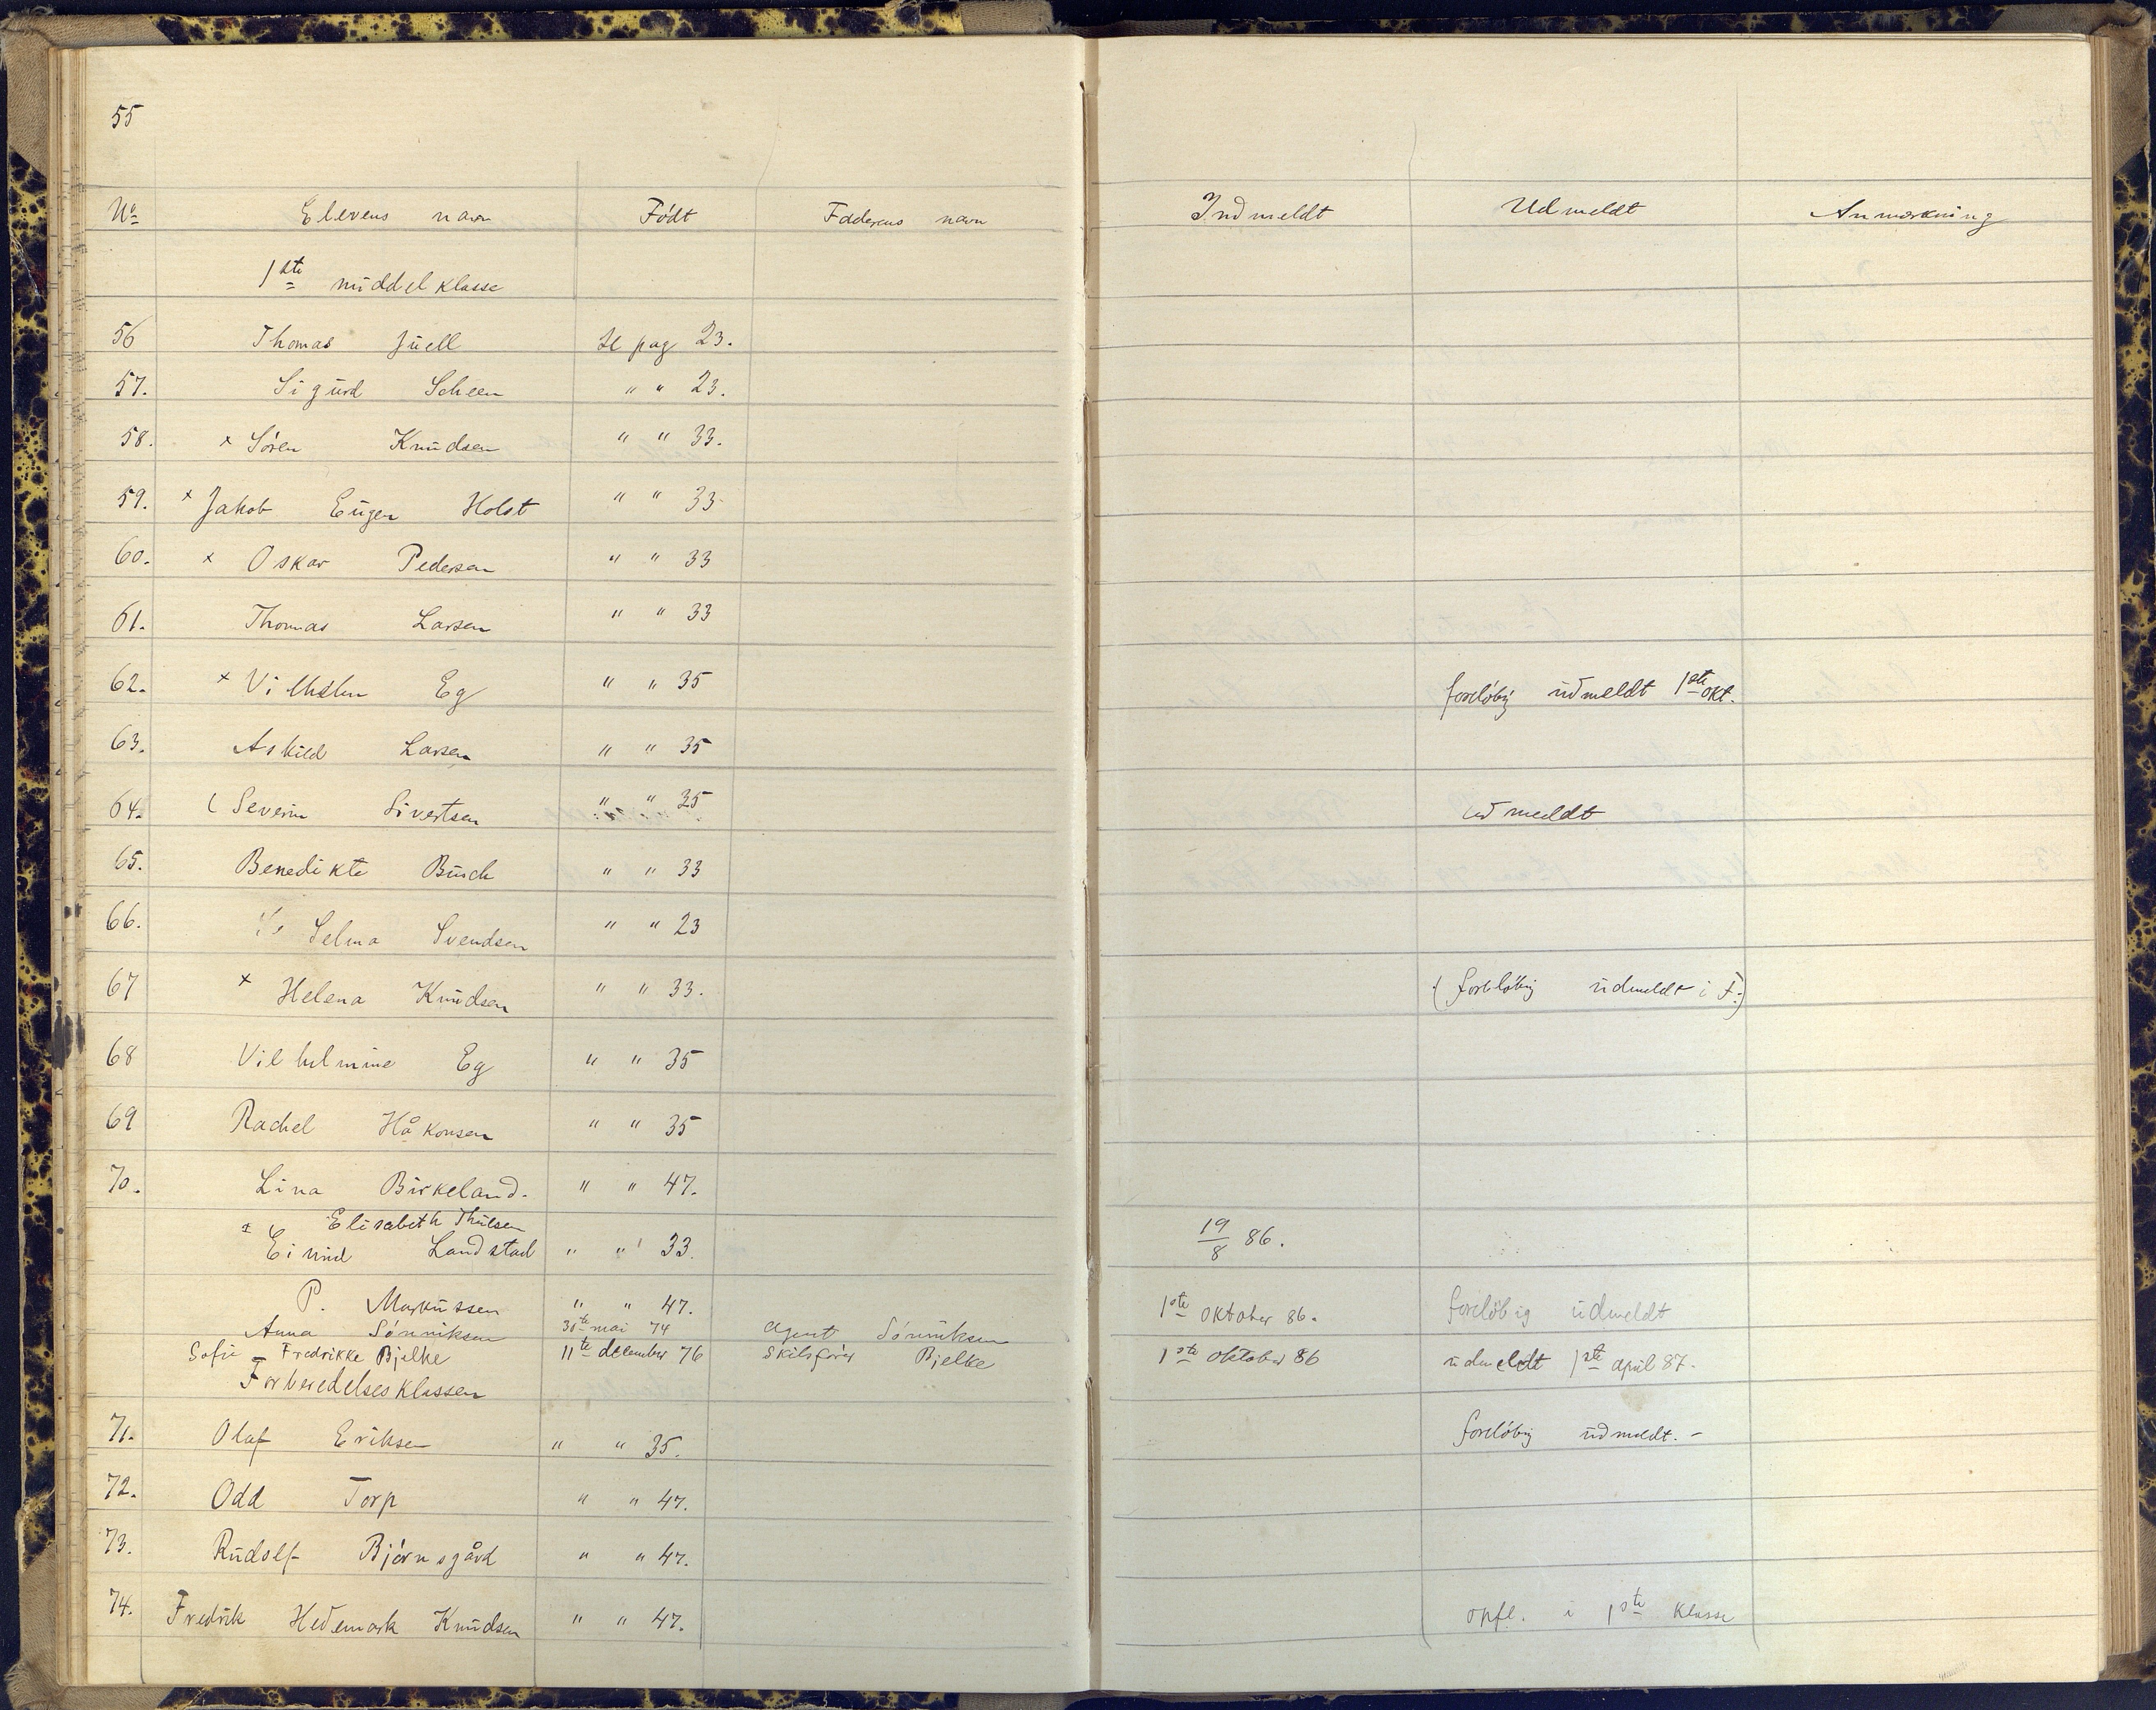 55
No Elevens navn Födt Faderens navn Indmeldt Udmeldt Anmærkning
1ste middelklasse
56 Thomas Juell se pag 23.
57. Sigurd Scheen " " 23.
58. x Sören Knudsen " " 33.
59. x Jakob Eugen Holst " " 33
60. x Oskar Pedersen " " 33
61. Thomas Larsen " " 33
62. x Vilhelm Eg " " 35 forelöbig udmeldt 1ste okt.
63. Askild Larsen " " 35
64. ( Severin Sivertsen " " 35 udmeldt
65. Benedikte Busch " " 33
66. Selma Svendsen " " 23
67 x Helena Knudsen " " 33. (forelöbig udmeldt i F.)
68 Vilhelmine Eg " " 35
69 Rachel Håkonsen " " 35
70. Lina Birkeland. " " 47.
Elisabeth Thulsen
x Eivind Landstad " " 33. 19/8 86.
P. Markussen " " 47. 1ste oktober 86. forelöbig udmeldt
Anna Sönniksen 30te mai 74 agent Sönniksen
Sofie Fredrikke Bjelke 11te december 76 skibsförer Bjelke 1ste oktober 86 udmeldt 1ste april 87.
Forberedelsesklassen
71. Olaf Eriksen " " 35. forelöbig udmeldt. -
72. Odd Torp " " 47.
73. Rudolf Björnsgård " " 47.
74. Fredrik Hedemark Knudsen " " 47. opfl. i 1ste klasse